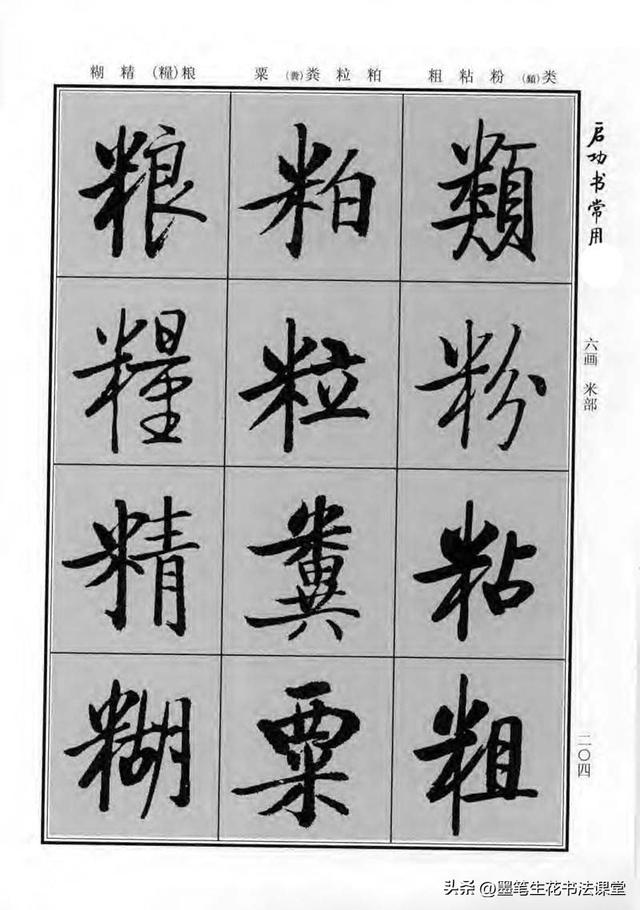 类(類)粉粘粗
粕粒粪(糞)粟
粮(糧)精糊
启功书常用
六画 米部
類
粉
粘
粗
粕
粒
糞
粟
粮
糧
精
糊
二〇四
头条@墨笔生花书法课堂